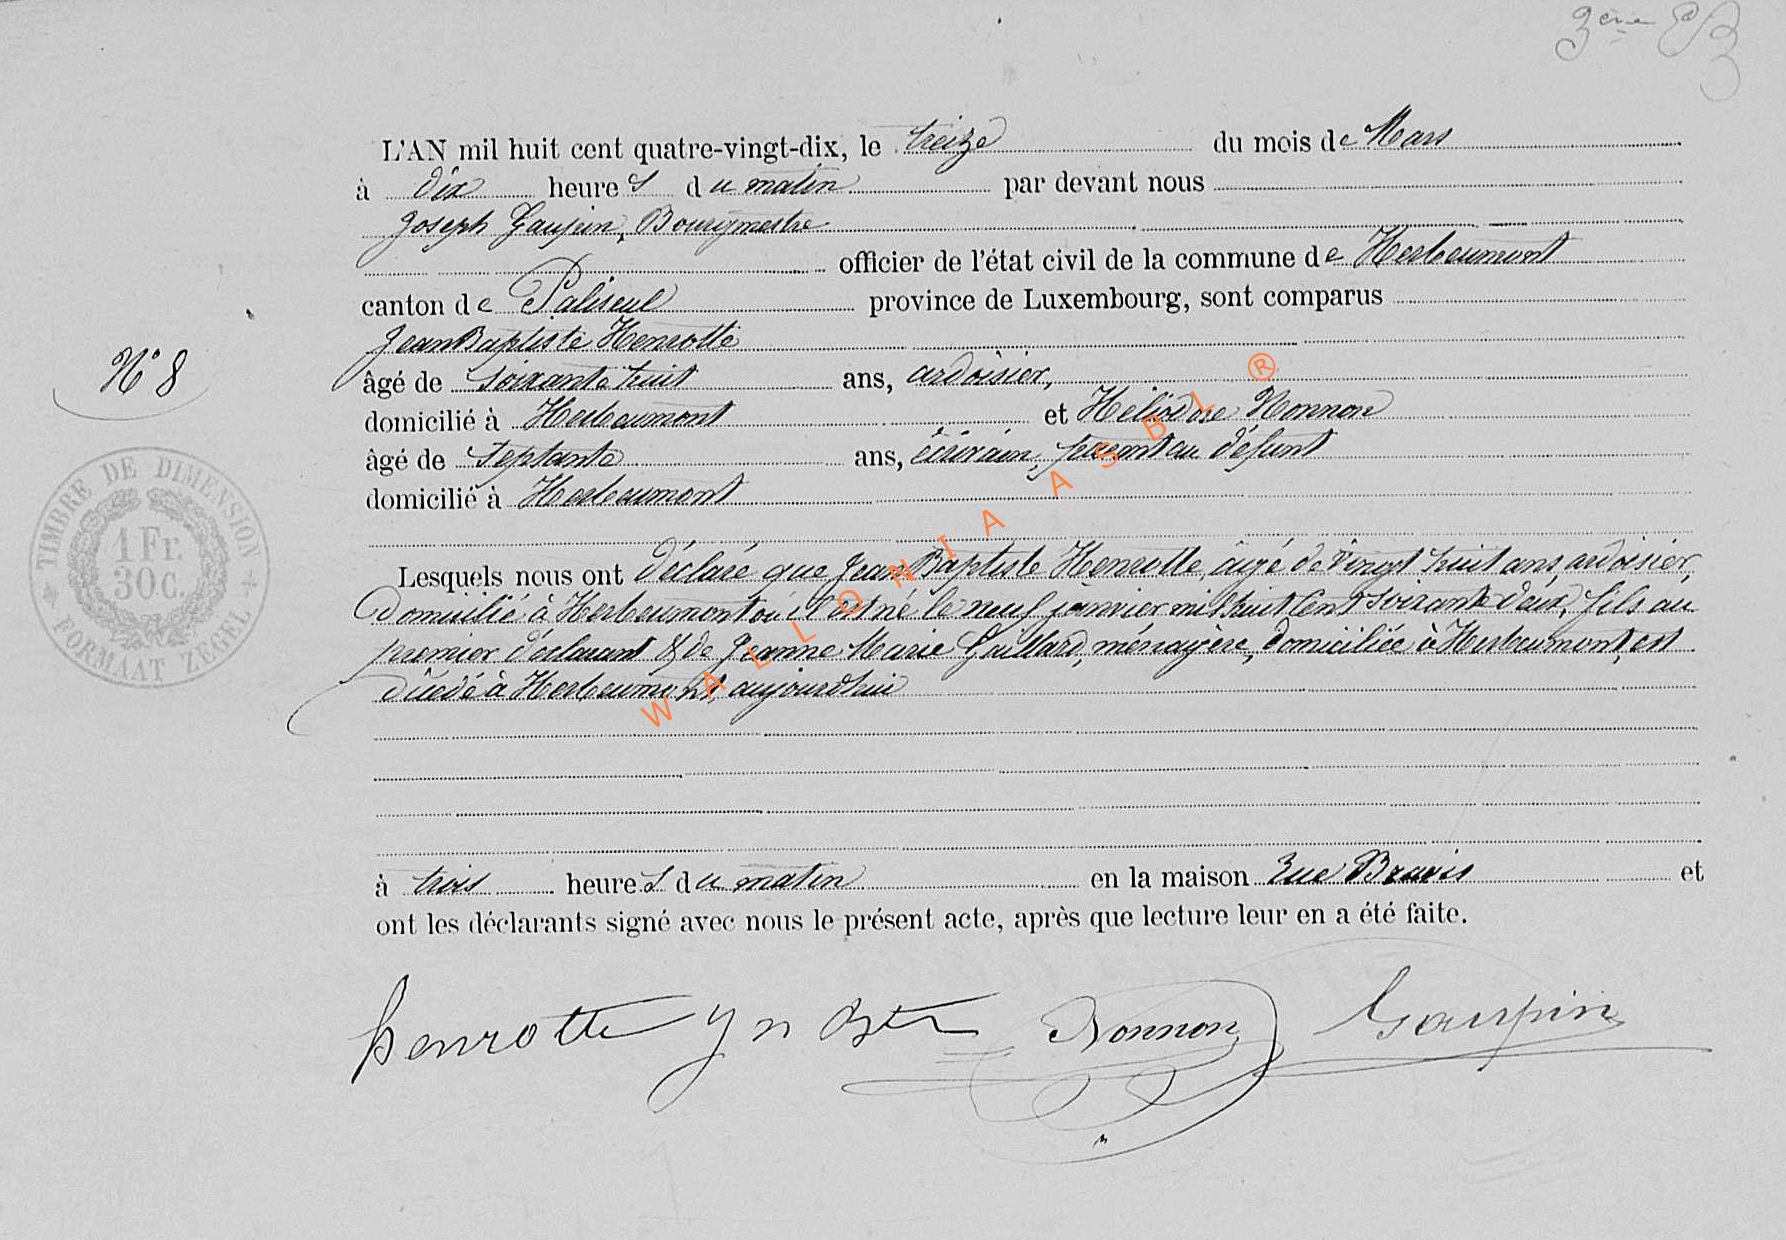 3ème
N° 8
L'AN mil huit cent quatre-vingt-dix, le treize du mois de Mars
à dix heures du matin par devant nous
Joseph Gaupin, Bourgmestre
officier de l'état civil de la commune de Herbeumont
canton de Paliseul province de Luxembourg, sont comparus
Jean Baptiste Henrotte
âgé de soixante huit ans, ardoisier,
domicilié à Herbeumont et Héliodore Nonnon
âgé de septante ans, écrivain, parent au défunt
domicilié à Herbeumont
Lesquels nous ont déclaré que Jean Baptiste Henrotte, âgé de vingt huit ans, ardoisier,
domicilié à Herbeumont où il est né le neuf janvier mil huit cent soixante deux, fils au
premier déclarant & de Jeanne Marie Guillard, ménagère, domiciliée à Herbeumont, est
décédé à Herbeumont, aujourd'hui
à trois heures du matin en la maison Rue Bravis et
ont les déclarants signé avec nous le présent acte, après que lecture leur en a été faite.
henrotte Jn Bte Nonnon Gaupin
TIMBRE DE DIMENSION
1 Fr.
30 c.
FORMAAT ZEGEL
WALLONIA ASBL ®